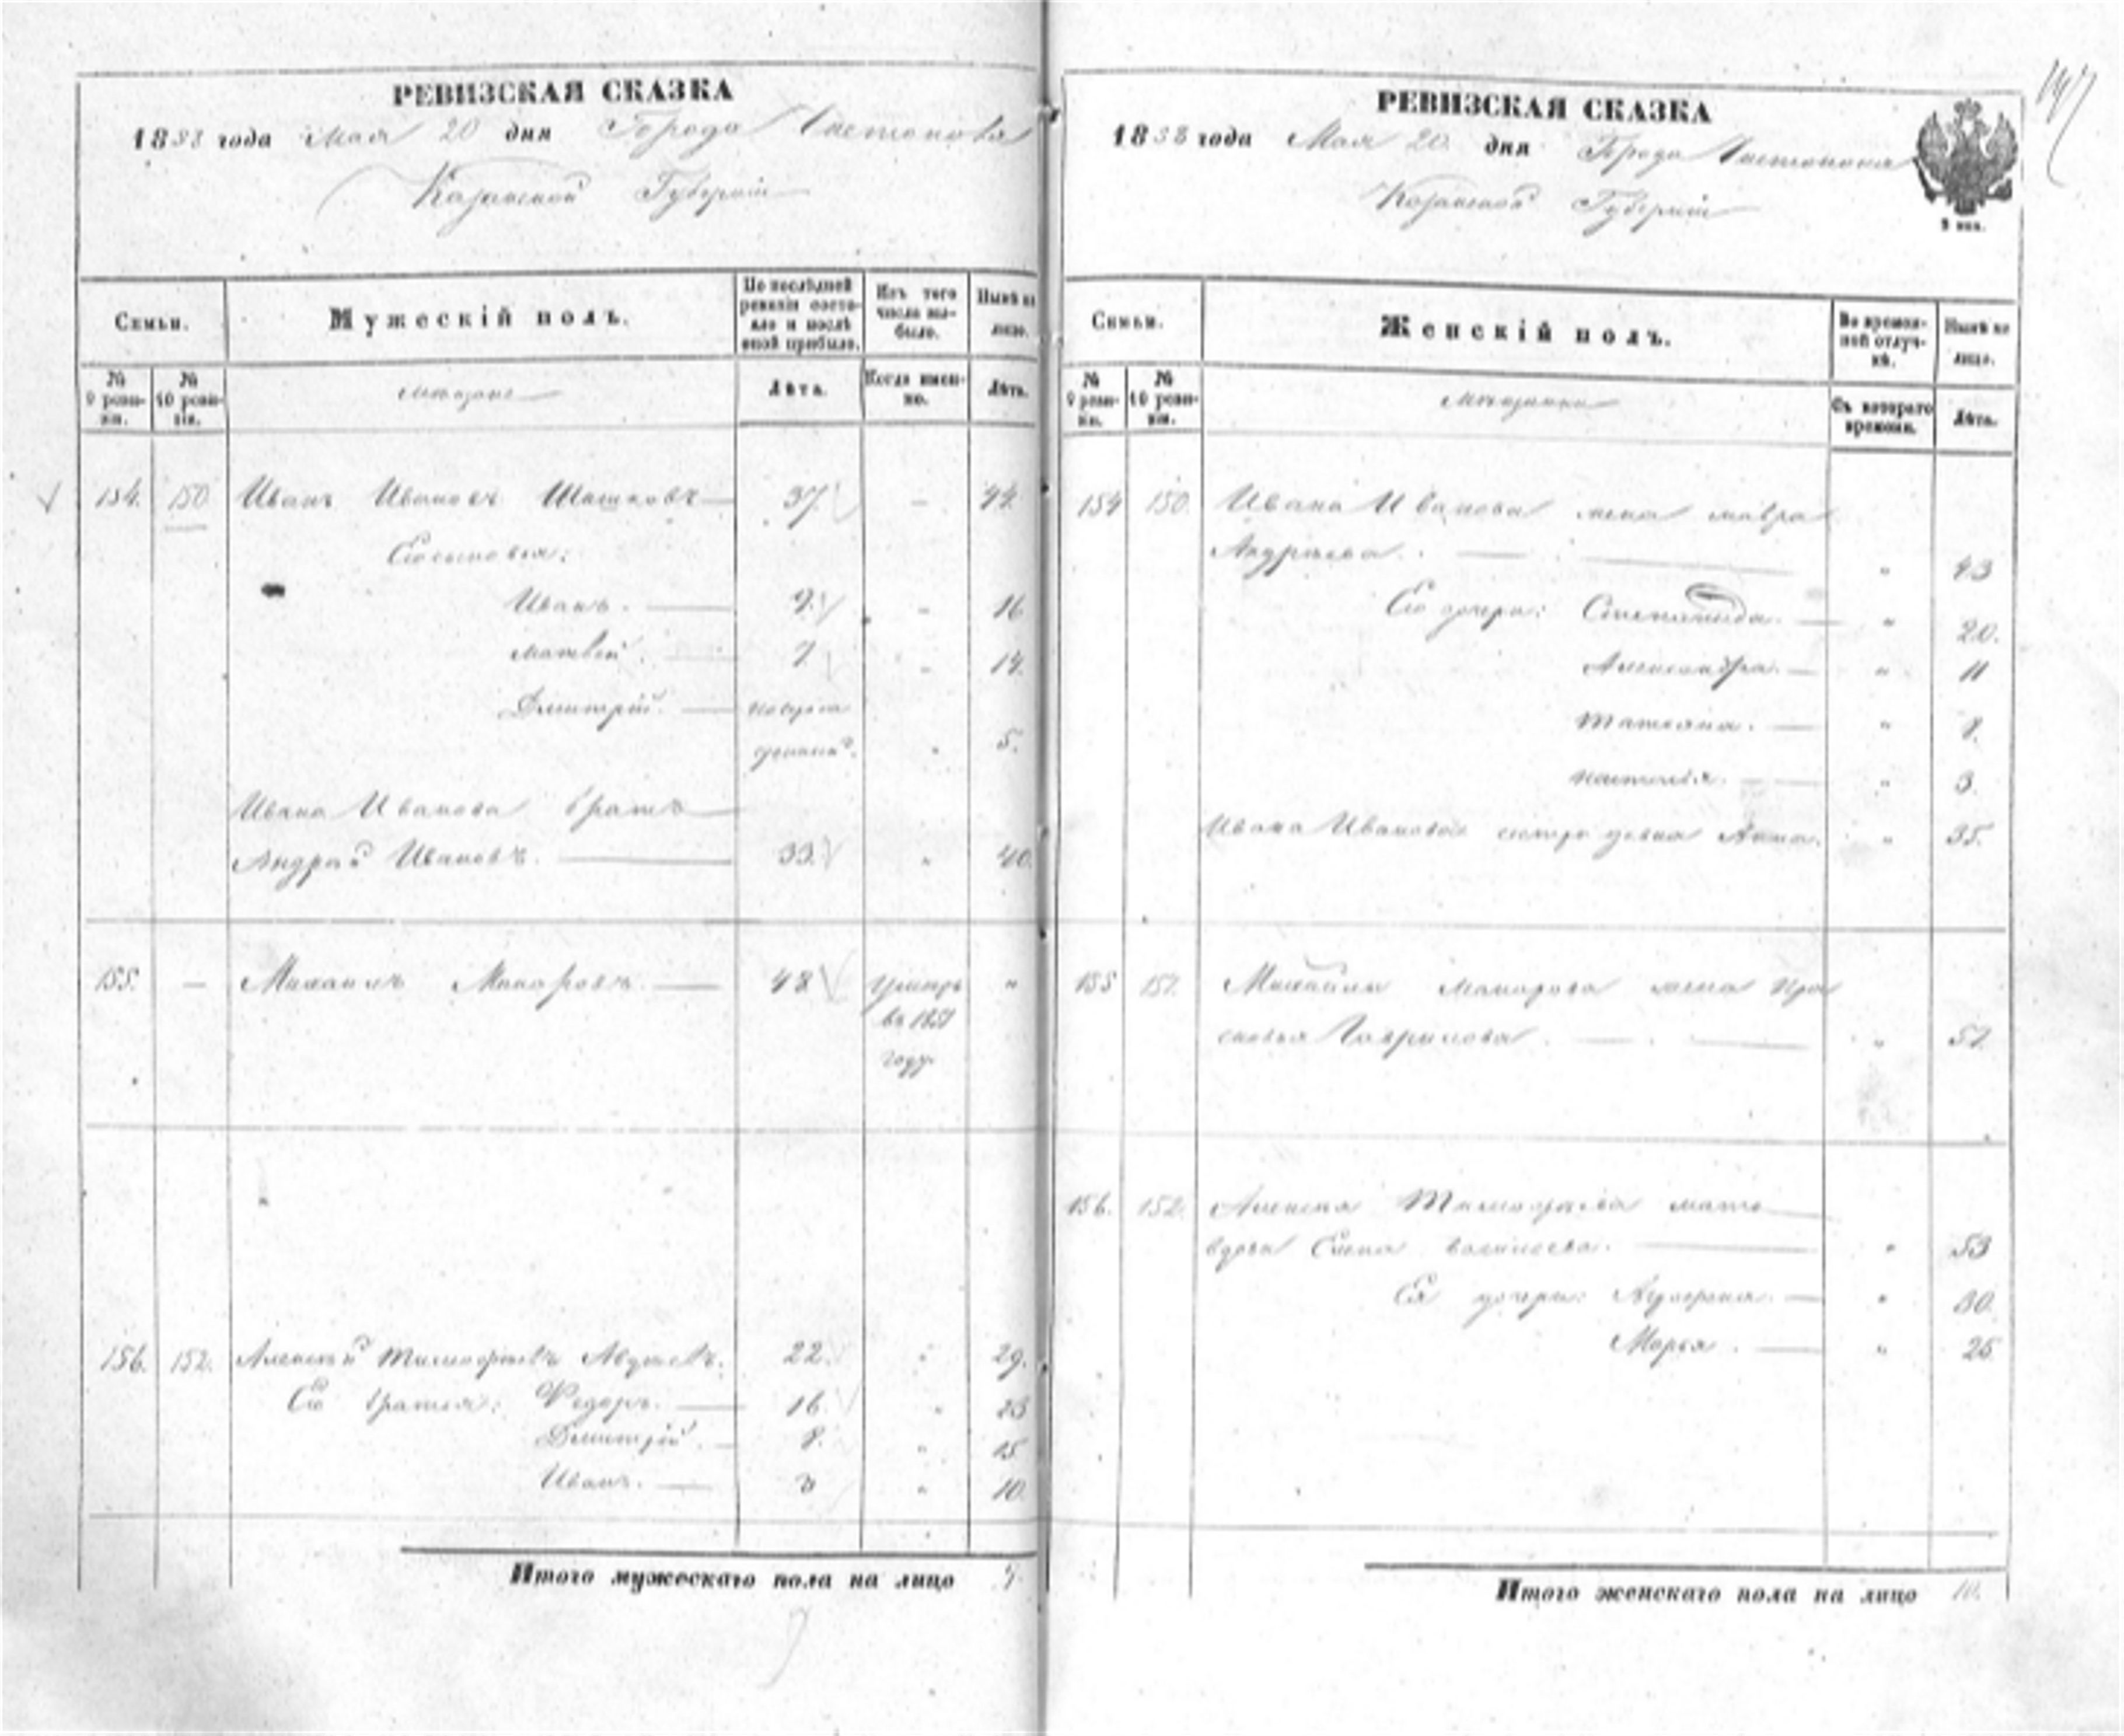 РЕВИЗСКАЯ СКАЗКА
1858 года Мая 20 дня Города Чистополя
Казанской Губерніи
Семьи.
Мужескій полъ.
По послѣдней ревизіи состояло и послѣ оной прибыло.
Изъ того числа выбыло.
Нынѣ на лицо.
№ 9 ревизіи.
№ 10 ревизіи.
мѣщане
Лѣта.
Когда именно.
Лѣта.
154. 150 Иванъ Ивановъ Шашковъ 37. - 44.
Его сыновья:
Иванъ. 9. " 16
Матвей. 7 " 14.
Дмитрій. новорож
денный. " 5.
Ивана Иванова братъ
Андрей Ивановъ. 33. " 40.
155. — Михаилъ Макаровъ. 48 умеръ "
въ 1851
году
156. 152. Алексей Тимофеевъ Авдеевъ. 22. " 29.
Его братья: Федоръ. 16. " 23
Дмитрій. 8. " 15
Иванъ. 3 " 10.
Итого мужескаго пола на лицо 9.
9
147
РЕВИЗСКАЯ СКАЗКА
1858 года Мая 20 дня Города Чистополя
Казанской Губерніи
Семьи.
Женскій полъ.
Во временной отлучкѣ.
Нынѣ на лицо.
№ 9 ревизіи.
№ 10 ревизіи.
мѣщанки
Съ котораго времени.
Лѣта.
154 150. Ивана Иванова жена мавра
Андреева. " 43
Его дочери: Степанида. " 20.
Александра. " 11
Татьяна. " 8.
Настасья. " 3.
Ивана Иванова сестра девка Анна. " 35.
155 151. Михайлы Макарова жена Пра
сковья Гаврилова. " 51.
156. 152. Алексея Тимофеева мать
вдова Елена васильева. " 53
Ея дочери: " 30.
Марья. " 25
Итого женскаго пола на лицо 10.